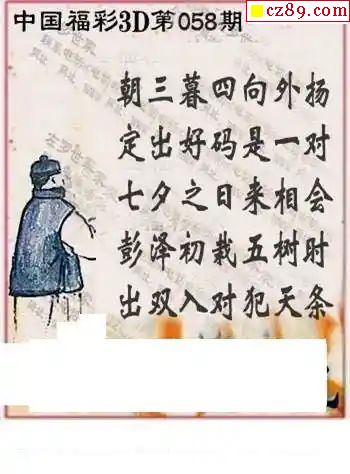 cz89.com
中国福彩3D第058期
朝三暮四向外扬
定出好码是一对
七夕之日来相会
彭泽初栽五树时
出双入对犯天条